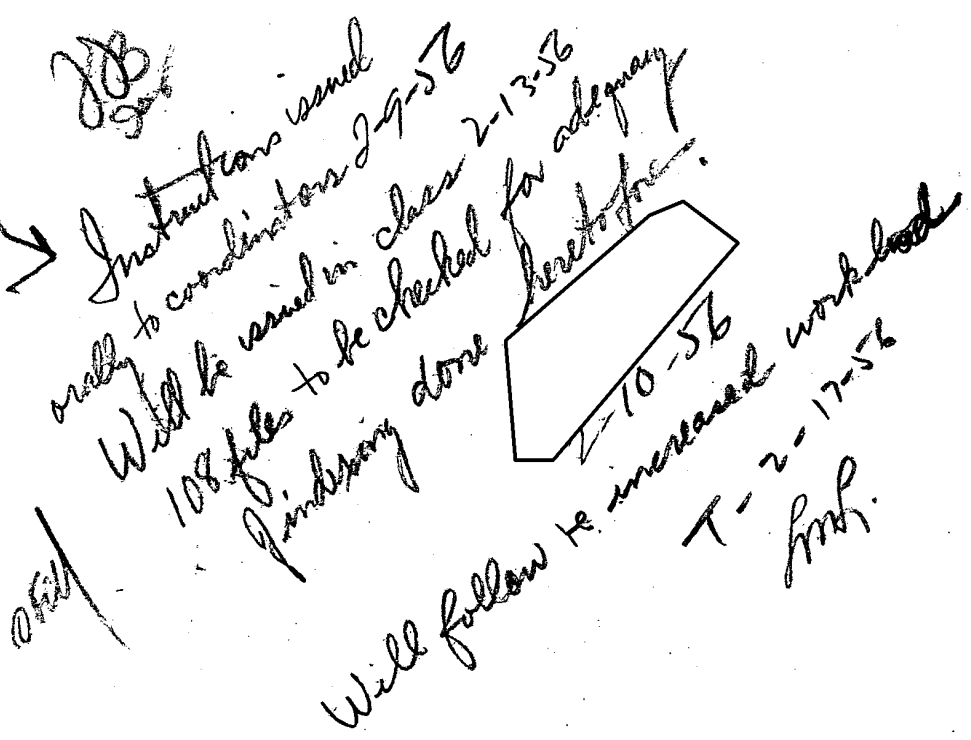 Instructions issued
orally to coordinators 2-9-56
Will be issued in class 2-13-56
108 files to be checked for adequacy
of indexing done heretofore.
2-10-56
Will follow re increased work load
T-2-17-56